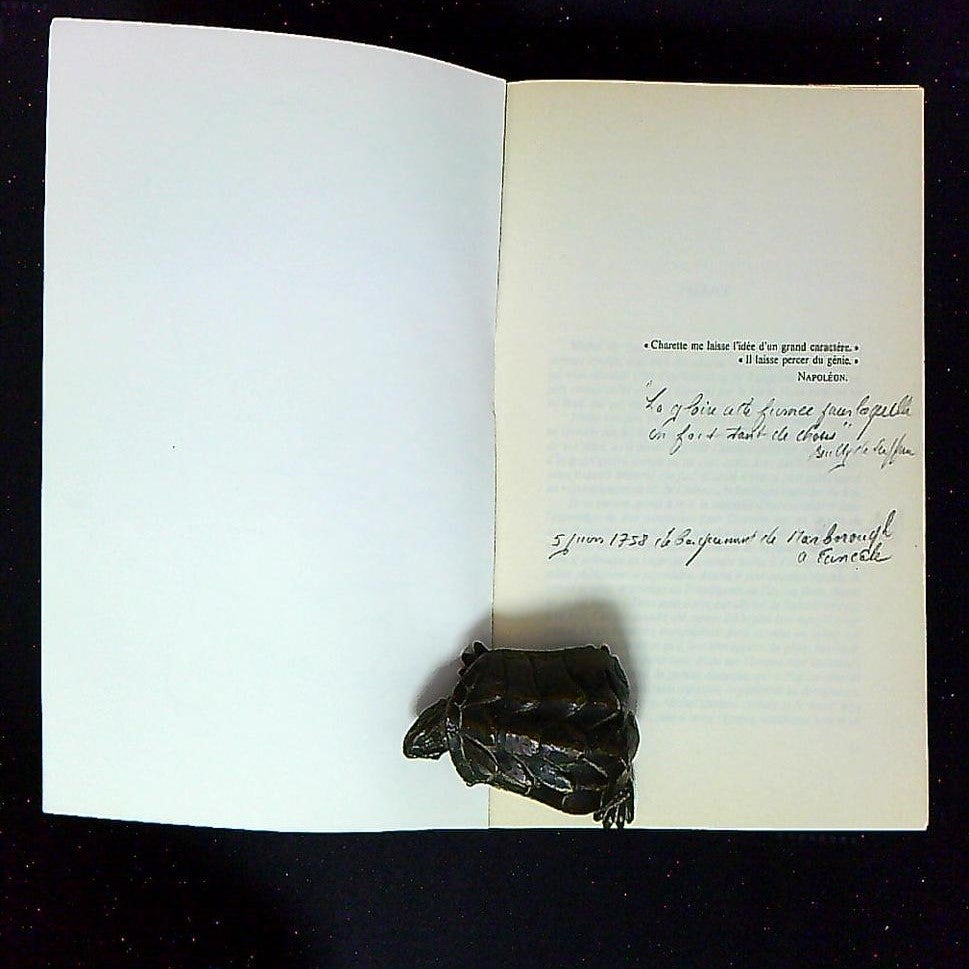 « Charette me laisse l'idée d'un grand caractère. »
« Il laisse percer du génie. »
NAPOLÉON.
"La gloire cette fumée pour laquelle
on fait tant de choses"
5 juin 1758 débarquement de Marlborough
a Cancale